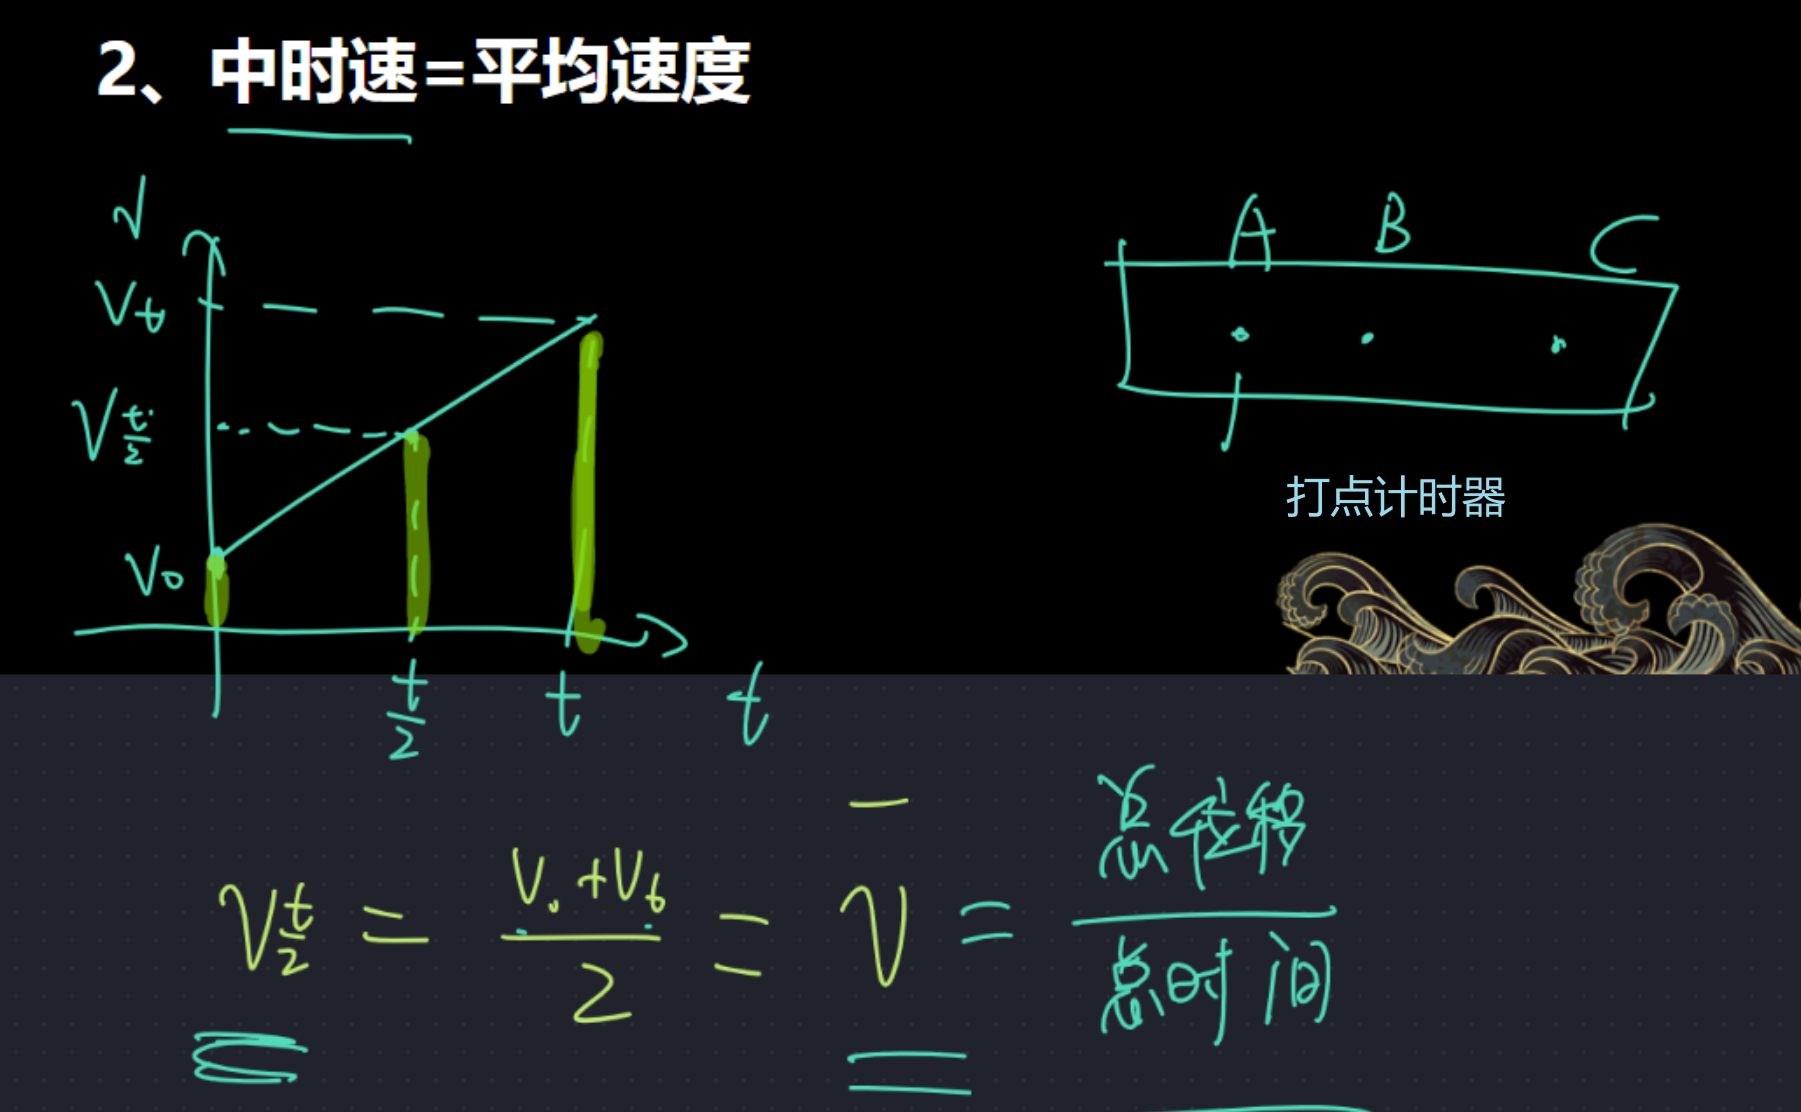 2、中时速=平均速度
v
Vt
V t/2
V0
t/2 t t
A B C
打点计时器
V t/2 = (V0+Vt)/2 = V̄ = 总位移/总时间